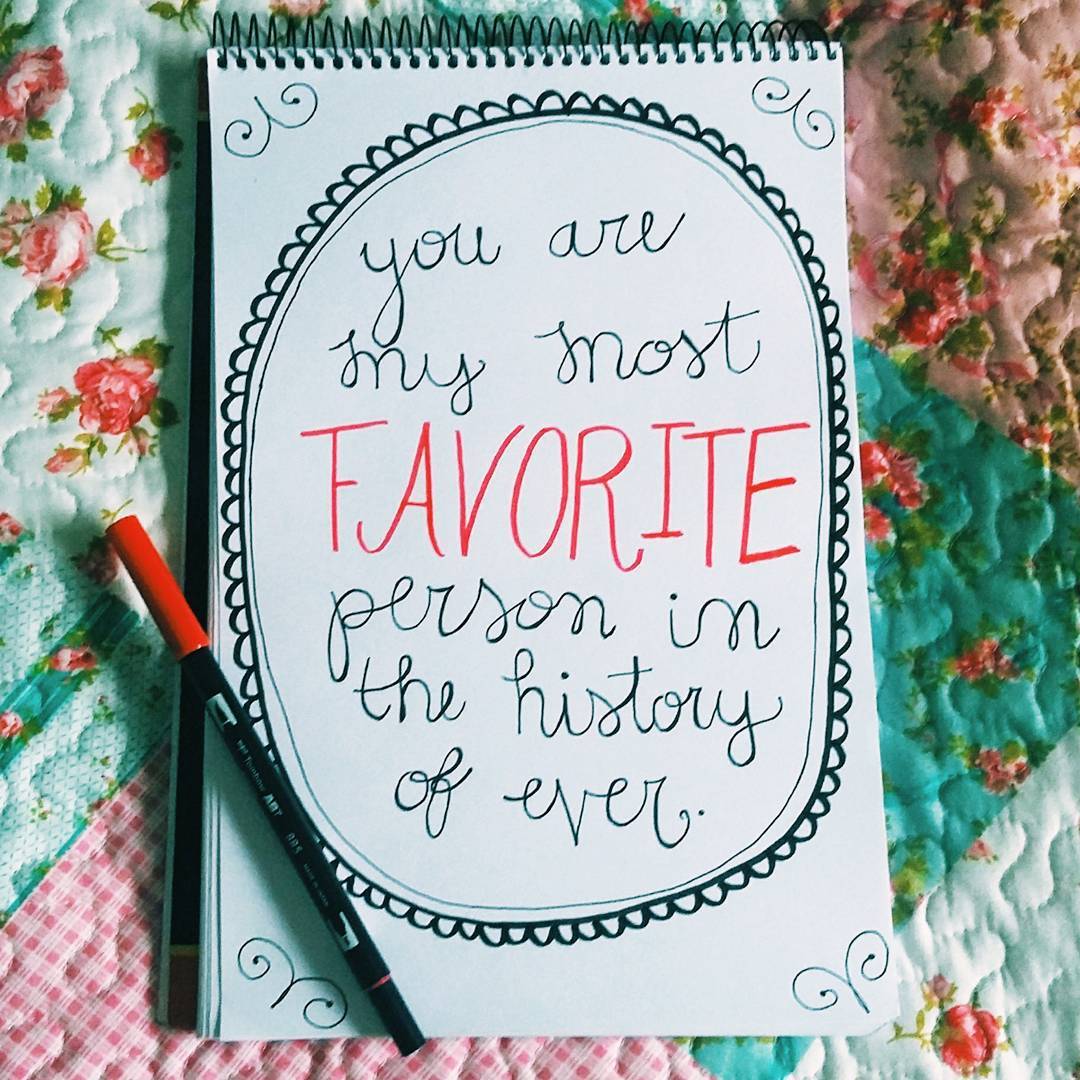 you are
my most
FAVORITE
person in
the history
of ever.
Tombow ABT